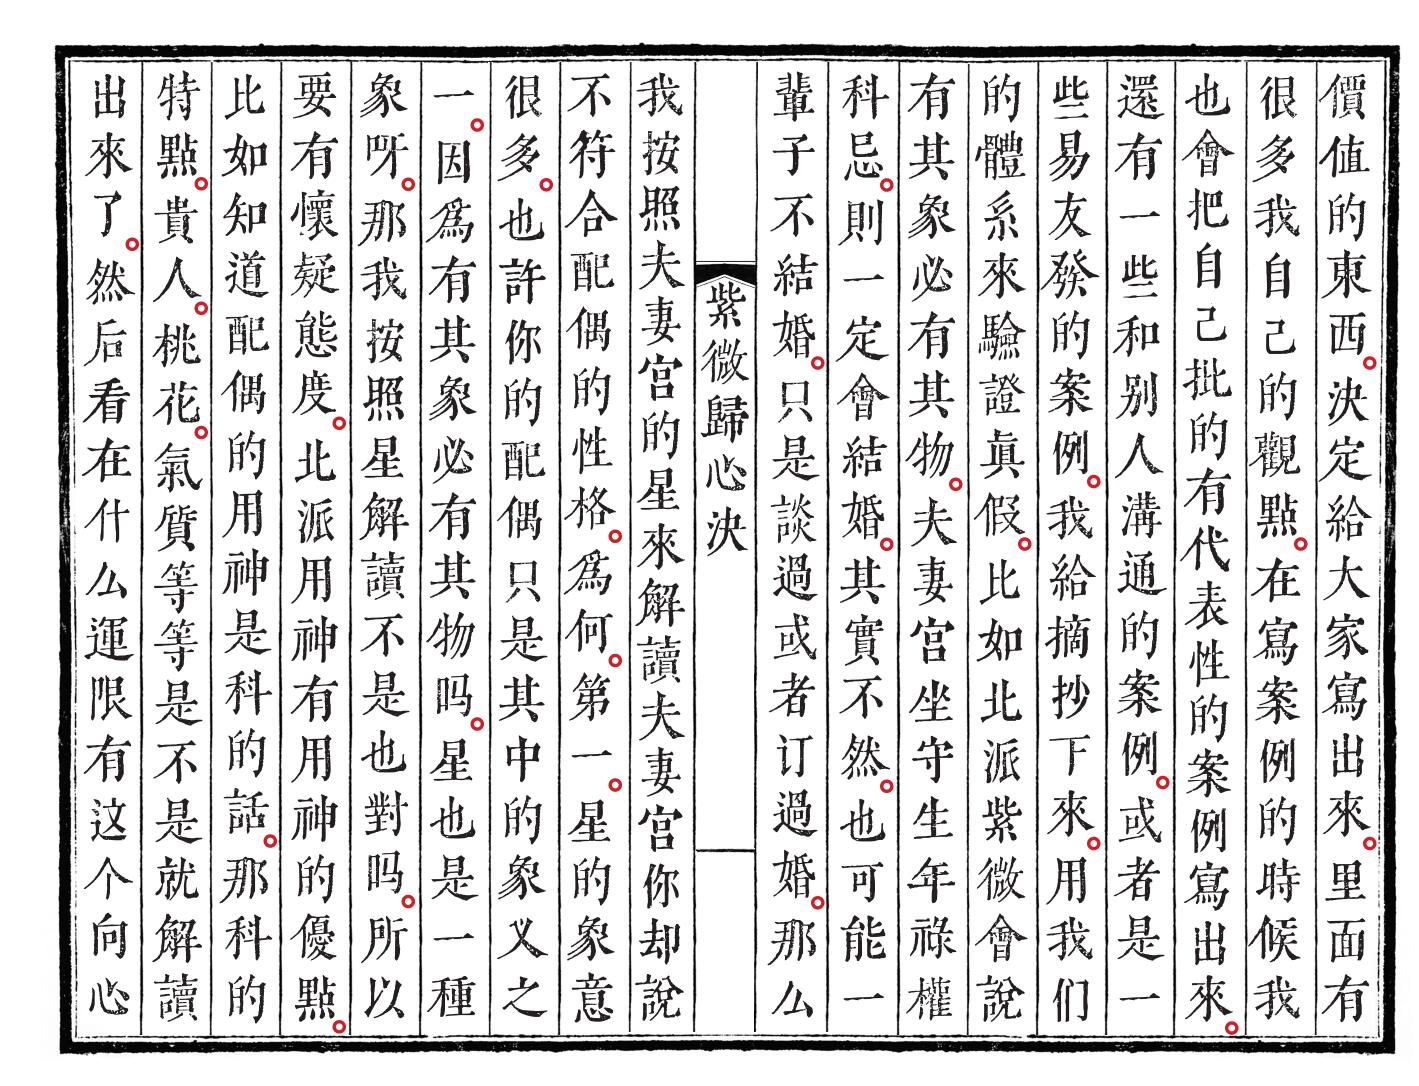 價值的東西。決定給大家寫出來。里面有
很多我自己的觀點。在寫案例的時候我
也會把自己批的有代表性的案例寫出來。
還有一些和别人溝通的案例。或者是一
些易友發的案例。我給摘抄下來。用我们
的體系來驗證眞假。比如北派紫微會說
有其象必有其物。夫妻宮坐守生年祿權
科忌。則一定會結婚。其實不然。也可能一
輩子不結婚。只是談過或者订過婚。那么
紫微歸心決
我按照夫妻宮的星來解讀夫妻宮你却說
不符合配偶的性格。爲何。第一。星的象意
很多。也許你的配偶只是其中的象义之
一。因爲有其象必有其物吗。星也是一種
象呀。那我按照星解讀不是也對吗。所以
要有懷疑態度。北派用神有用神的優點。
比如知道配偶的用神是科的話。那科的
特點。貴人。桃花。氣質等等是不是就解讀
出來了。然后看在什么運限有这个向心